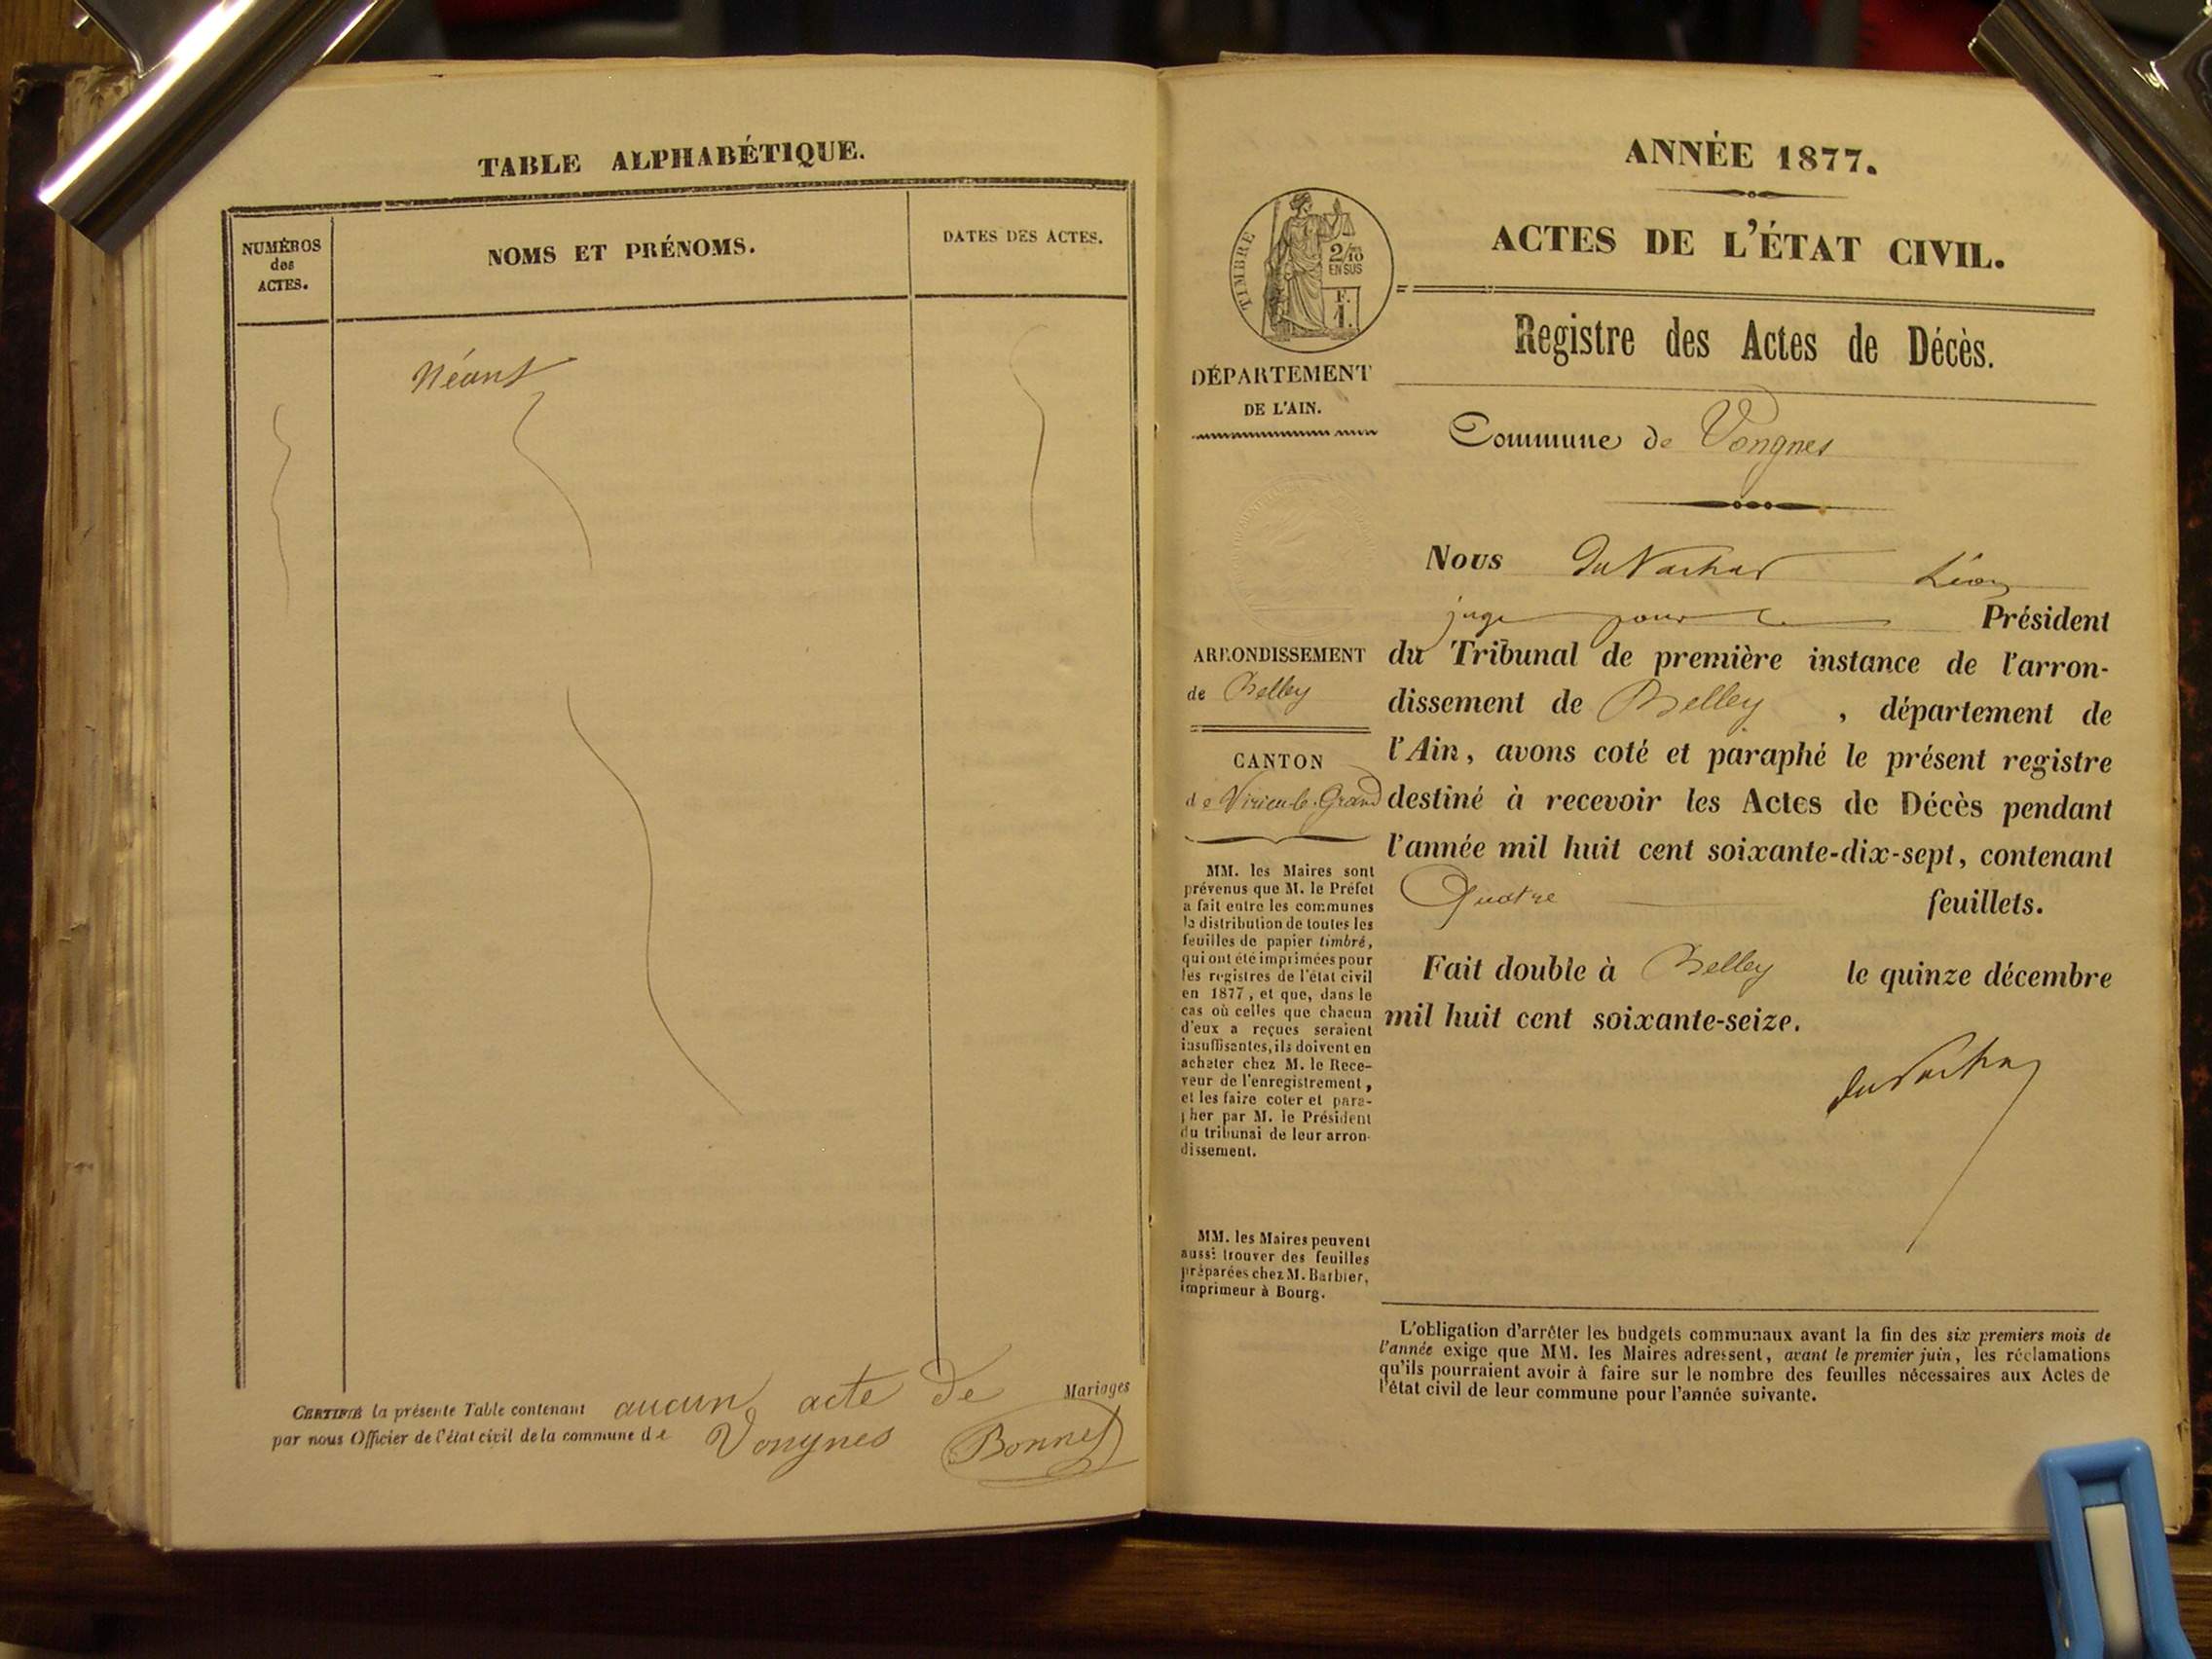 TABLE ALPHABÉTIQUE.
NUMÉROS
des
ACTES.
NOMS ET PRÉNOMS.
DATES DES ACTES.
Néant
CERTIFIÉ la présente Table contenant aucun acte de Mariages
par nous Officier de l'état civil de la commune de Vongnes Bonnet
ANNÉE 1877.
ACTES DE L'ÉTAT CIVIL.
TIMBRE
2/10
EN SUS
F.
1.
Registre des Actes de Décès.
DÉPARTEMENT
DE L'AIN.
Commune de Vongnes
Nous Léon
juge pour le Président
du Tribunal de première instance de l'arron-
dissement de Belley, département de
l'Ain, avons coté et paraphé le présent registre
destiné à recevoir les Actes de Décès pendant
l'année mil huit cent soixante-dix-sept, contenant
Quatre feuillets.
Fait double à Belley le quinze décembre
mil huit cent soixante-seize.
ARRONDISSEMENT
de Belley
CANTON
de Virieu-le-Grand
MM. les Maires sont
prévenus que M. le Préfet
a fait entre les communes
la distribution de toutes les
feuilles de papier timbré,
qui ont été imprimées pour
les registres de l'état civil
en 1877, et que, dans le
cas où celles que chacun
d'eux a reçues seraient
insuffisantes, ils doivent en
acheter chez M. le Rece-
veur de l'enregistrement,
et les faire coter et para-
pher par M. le Président
du tribunal de leur arron-
dissement.
MM. les Maires peuvent
aussi trouver des feuilles
préparées chez M. Barbier,
imprimeur à Bourg.
L'obligation d'arrêter les budgets communaux avant la fin des six premiers mois de
l'année exige que MM. les Maires adressent, avant le premier juin, les réclamations
qu'ils pourraient avoir à faire sur le nombre des feuilles nécessaires aux Actes de
l'état civil de leur commune pour l'année suivante.